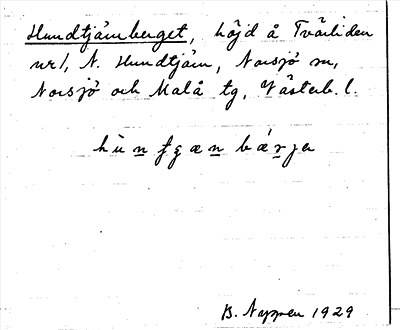 Hundtjärnberget, höjd å Tvärliden
nr 1, N. Hundtjärn, Norsjö sn,
Norsjö och Malå tg, Västerb. l.
B. Nappen 1929